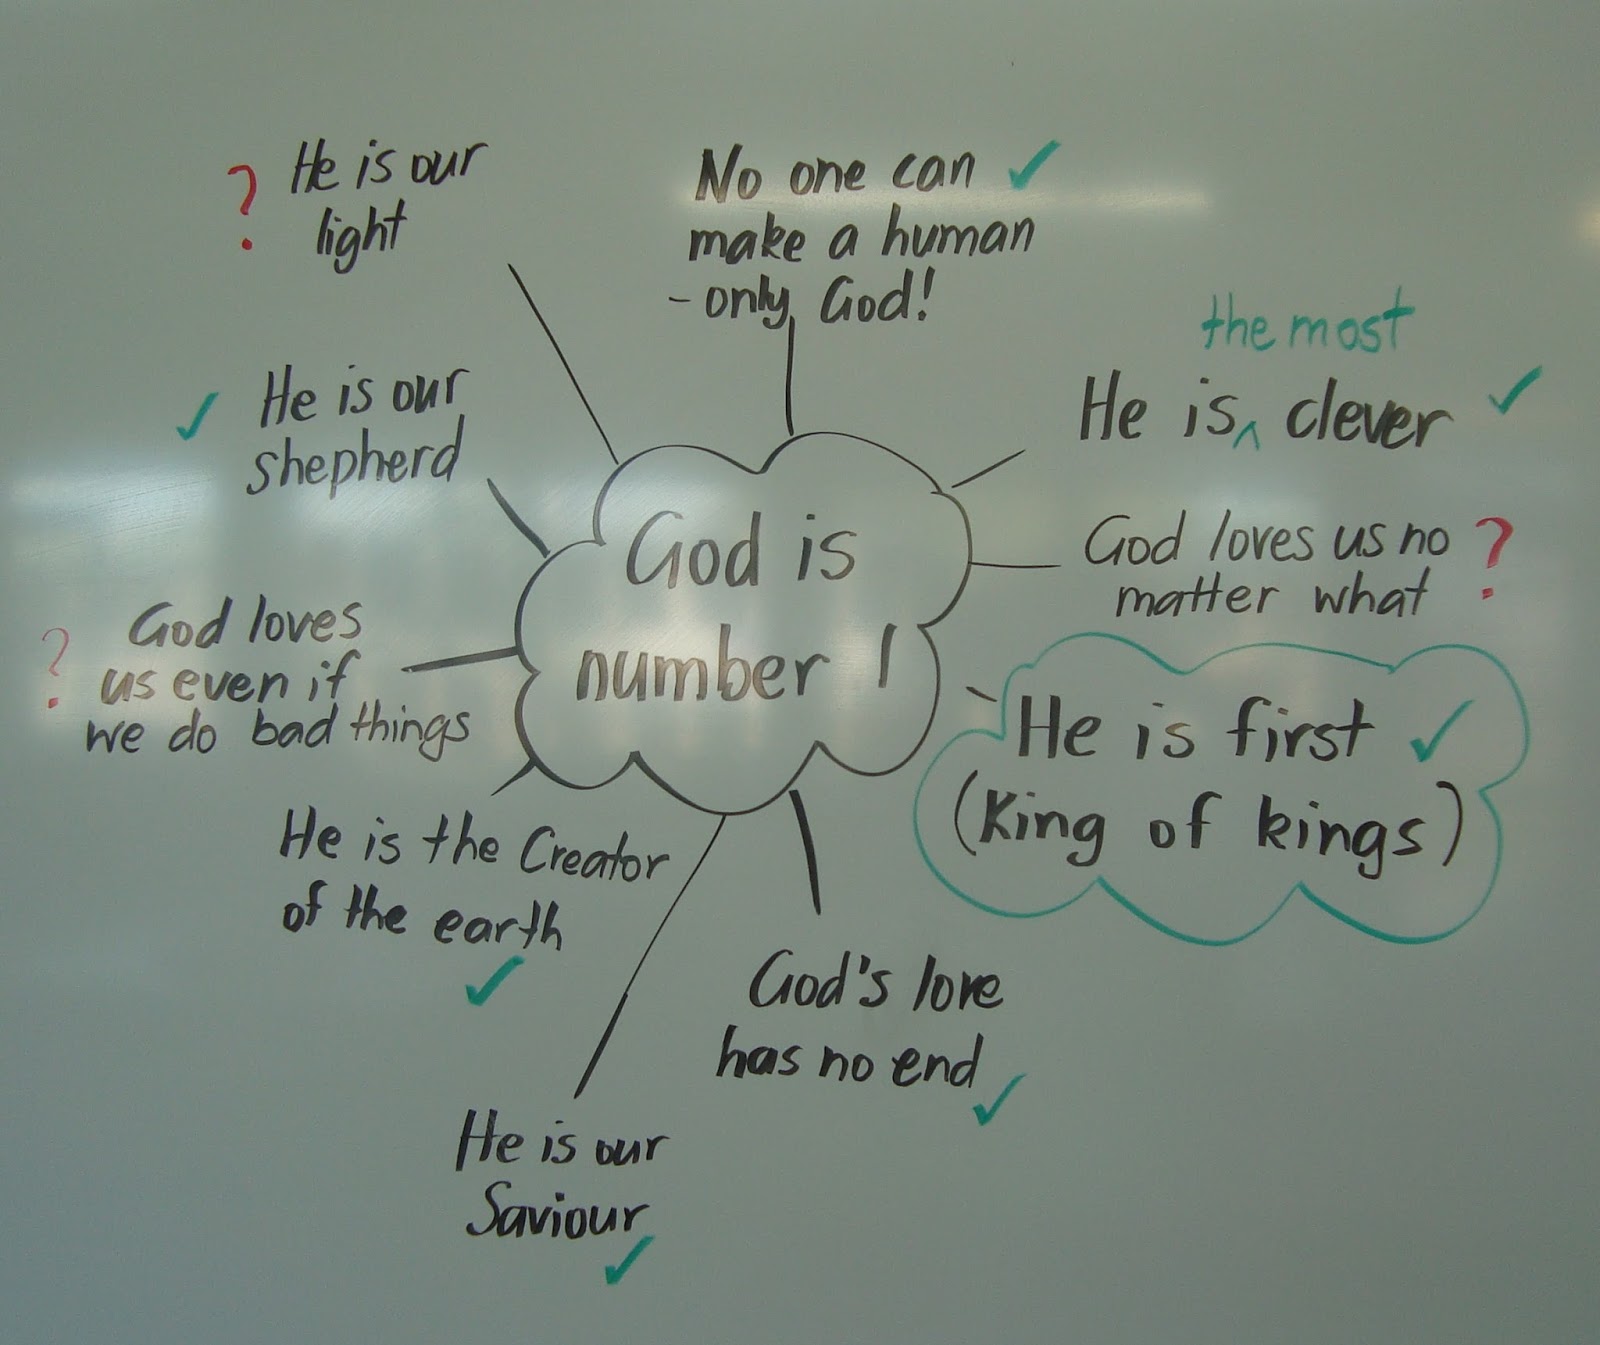 God is
number 1
? He is our
light
No one can ✓
make a human
- only God!
the most
He is ^ clever ✓
God loves us no ?
matter what
He is first ✓
(King of kings)
God's love
has no end ✓
He is our
Saviour ✓
He is the Creator
of the earth ✓
? God loves
us even if
we do bad things
✓ He is our
shepherd